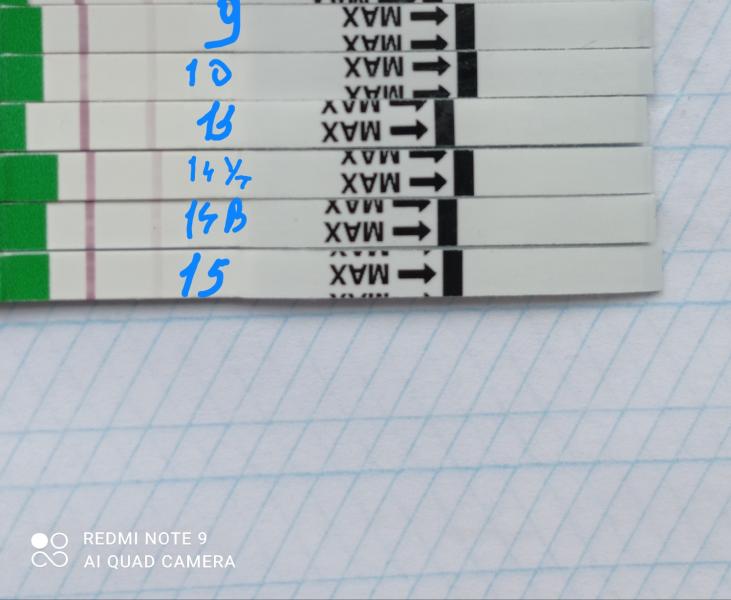 9 MAX
MAX
10 MAX
MAX
MAX
13 MAX
MAX
14 Ут MAX
MAX
14 В MAX
15 MAX
REDMI NOTE 9
AI QUAD CAMERA